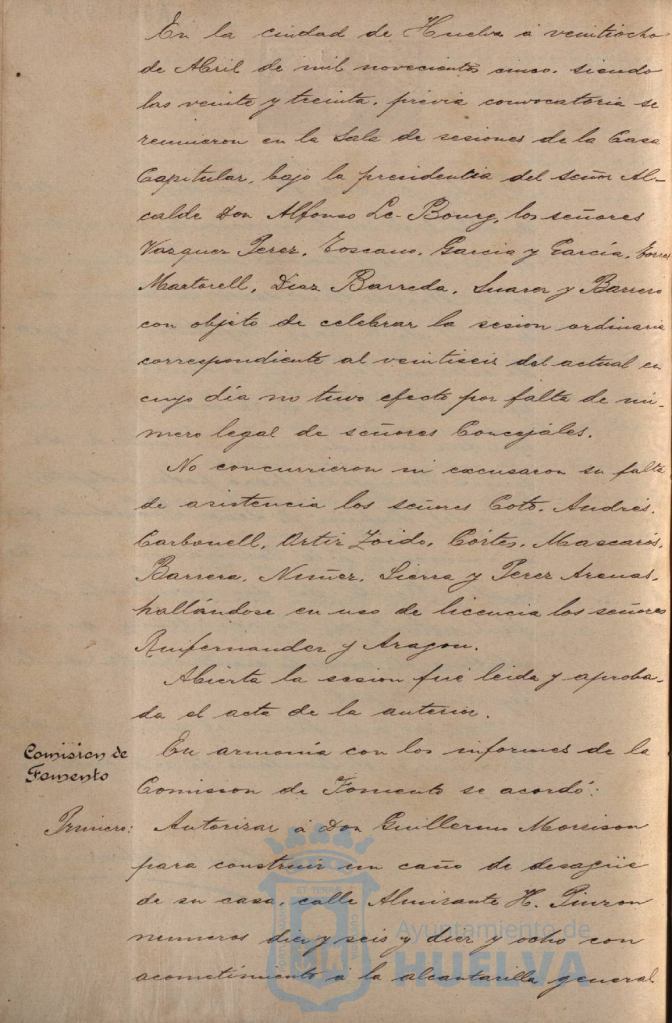 En la ciudad de Huelva á veintiocho
de Abril de mil novecientos cinco, siendo
las veinte y treinta, previa convocatoria se
reunieron en la Sala de sesiones de la Casa
Capitular, bajo la presidentia del señor Al-
calde Don Alfonso Le-Bourg, los señores
Vazquez Perez, Toscano, Garcia y García, Torres
Martorell, Diaz Barreda, Suarez y Barrero
con objeto de celebrar la sesion ordinaria
correspondiente al veintiseis del actual en
cuyo día no tuvo efecto por falta de nú-
mero legal de señores Concejales.
No concurrieron ni excusaron su falta
de asistencia los señores Coto, Andrés,
Carbonell, Ortiz Zoido, Córtes, Mascarós,
Barrera, Nuñez, Sierra y Perez Arenas,
hallándose en uso de licencia los señores
Ruifernandez y Aragon.
Abierta la sesion fué leida y aproba-
da el acta de la anterior.
Comision de
Fomento
En armonía con los informes de la
Comision de Fomento se acordó:
Primero: Autorizar á Don Guillermo Morrison
para construir un caño de desagüe
de su casa, calle Almirante H. Pinzon
numeros diez y seis y diez y ocho con
acometimiento á la alcantarilla general
Ayuntamiento de
HUELVA